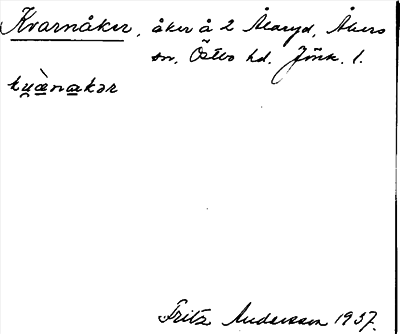 Kvarnåker, åker å 2 Ålaryd, Åkers
sn, Östbo hd. Jönk. l.
kṷæ̀nakər
Fritz Andersson 1937.